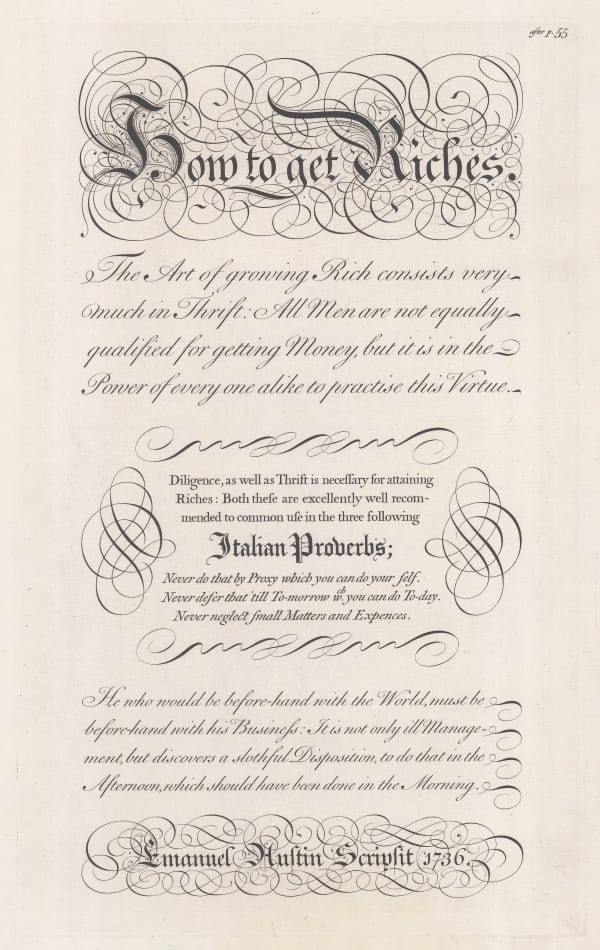 after p. 55
How to get Riches.
The Art of growing Rich consists very
much in Thrift: All Men are not equally
qualified for getting Money, but it is in the
Power of every one alike to practise this Virtue.
Diligence, as well as Thrift is neceſſary for attaining
Riches: Both theſe are excellently well recom-
mended to common uſe in the three following
Italian Proverbs;
Never do that by Proxy which you can do your ſelf.
Never defer that 'till To-morrow wch you can do To-day.
Never neglect ſmall Matters and Expences.
He who would be before-hand with the World, must be
before-hand with his Buſineſs: It is not only ill Manage-
ment, but discovers a slothful Disposition, to do that in the
Afternoon, which should have been done in the Morning.
Emanuel Auſtin Scripſit 1736.